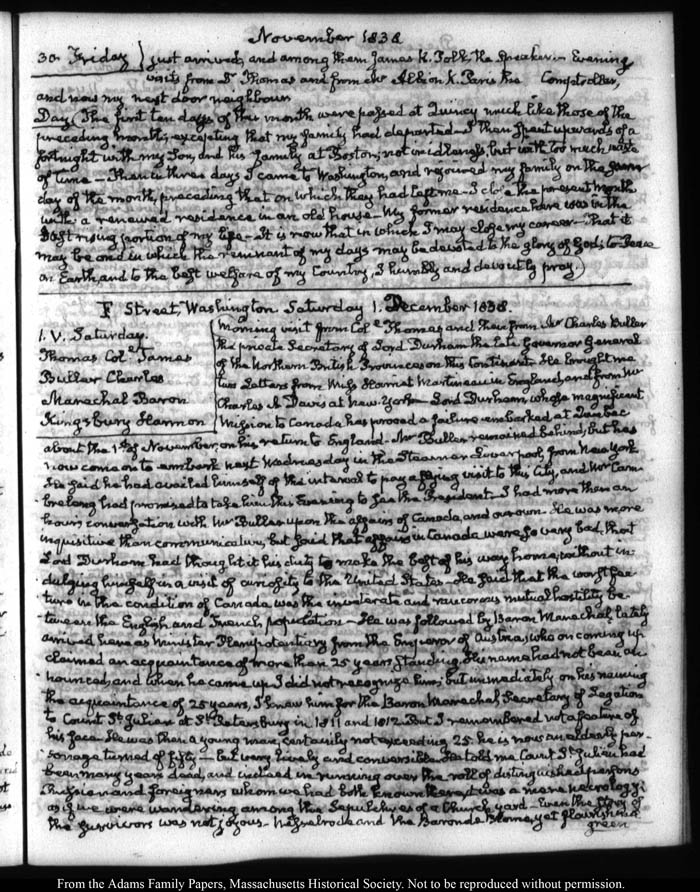 November 1838
30. Friday } just arrived, and among them James K. Polk the Speaker. Evening
visits from Dr Thomas and from Mr Albion K. Paris the Comptroller,
and now my next door neighbour.
Day. The first ten days of this month were passed at Quincy much like those of the
preceding month; excepting that my family had departed. I then spent upwards of a
fortnight with my Son, and his family at Boston; not idly, but with too much waste
of time — Then in three days I came to Washington, and rejoined my family on the same
day of the month, preceding that on which they had left me. I close the present month
with a renewed residence in an old house. My former residence here was in the
last rising portion of my life — It is now that in which I may close my career — That it
may be one in which the remnant of my days may be devoted to the glory of God, to Peace
on Earth, and to the best welfare of my Country, I humbly and devoutly pray.)
F Street, Washington Saturday 1. December 1838.
1. V. Saturday.
Thomas Col. James
Buller Charles
Marechal Baron
Kingsbury Harmon
Morning visit from Col. Thomas and then from Mr Charles Buller
the private Secretary of Lord Durham the late Governor General
of the Northern British Provinces on this Continent. He brought me
two Letters from Miss Harriet Martineau in England, and from Mr
Charles A Davis at New-York — Lord Durham, whose magnificent
Mission to Canada has proved a failure embarked at Quebec
about the 1st of November, on his return to England. Mr Buller remained behind, but has
now come on to embark next Wednesday in the Steamer Liverpool, from New York.
He said he had availed himself of the interval to pay a flying visit to this City, and Mr Cam-
breleng had promised to take him this Evening to see the President. I had more than an
hours conversation with Mr Buller upon the affairs of Canada, and our own. He was more
inquisitive than communicative, but said that affairs in Canada were so very bad, that
Lord Durham had thought it his duty to make the best of his way home, without in-
dulging himself in a visit of curiosity to the United States. He said that the worst fea-
ture in the condition of Canada was the inveterate and rancorous mutual hostility be-
tween the English and French population — He was followed by Baron Marechal, lately
arrived here as Minister Plenipotentiary from the Emperor of Austria, who on coming up
claimed an acquaintance of more than 25 years standing. His name had not been an-
nounced, and when he came up I did not recognize him; but immediately on his naming
the acquaintance of 25 years, I knew him for the Baron Marechal, Secretary of Legation
to Count St Julien at St Petersburg in 1811 and 1812. But I remembered not a feature of
his face. He was then a young man, certainly not exceeding 25. he is now an elderly per-
sonage turned of fifty — but very lively and conversible. He told me Count St Julien had
been many years dead, and indeed in running over the roll of distinguished persons
Russian and foreigners whom we had both known there, it was a mere necrology;
as if we were wandering among the Sepulchres of a Church yard. Even the story of
the survivors was not joyous. Nesselrode and the Baron de Blome, yet flourishing
green
From the Adams Family Papers, Massachusetts Historical Society. Not to be reproduced without permission.